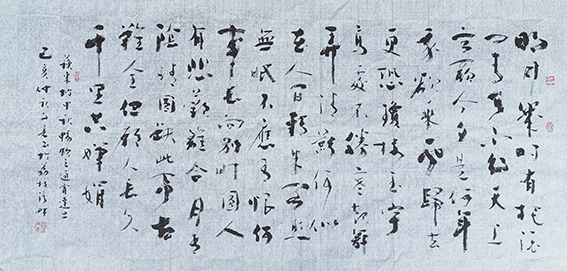 明月幾時有把酒
問青天不知天上
宮闕今夕是何年
我欲乘風歸去
恐瓊樓玉宇
高處不勝寒起舞
弄清影何似
在人間轉朱閣照
無眠不應有恨何
事長向別時圓人
有悲歡離合月有
陰晴圓缺此事古
難全但願人長久
千里共嬋娟
蘇東坡中秋暢飲之通宵達旦
己亥仲秋書於荔枝